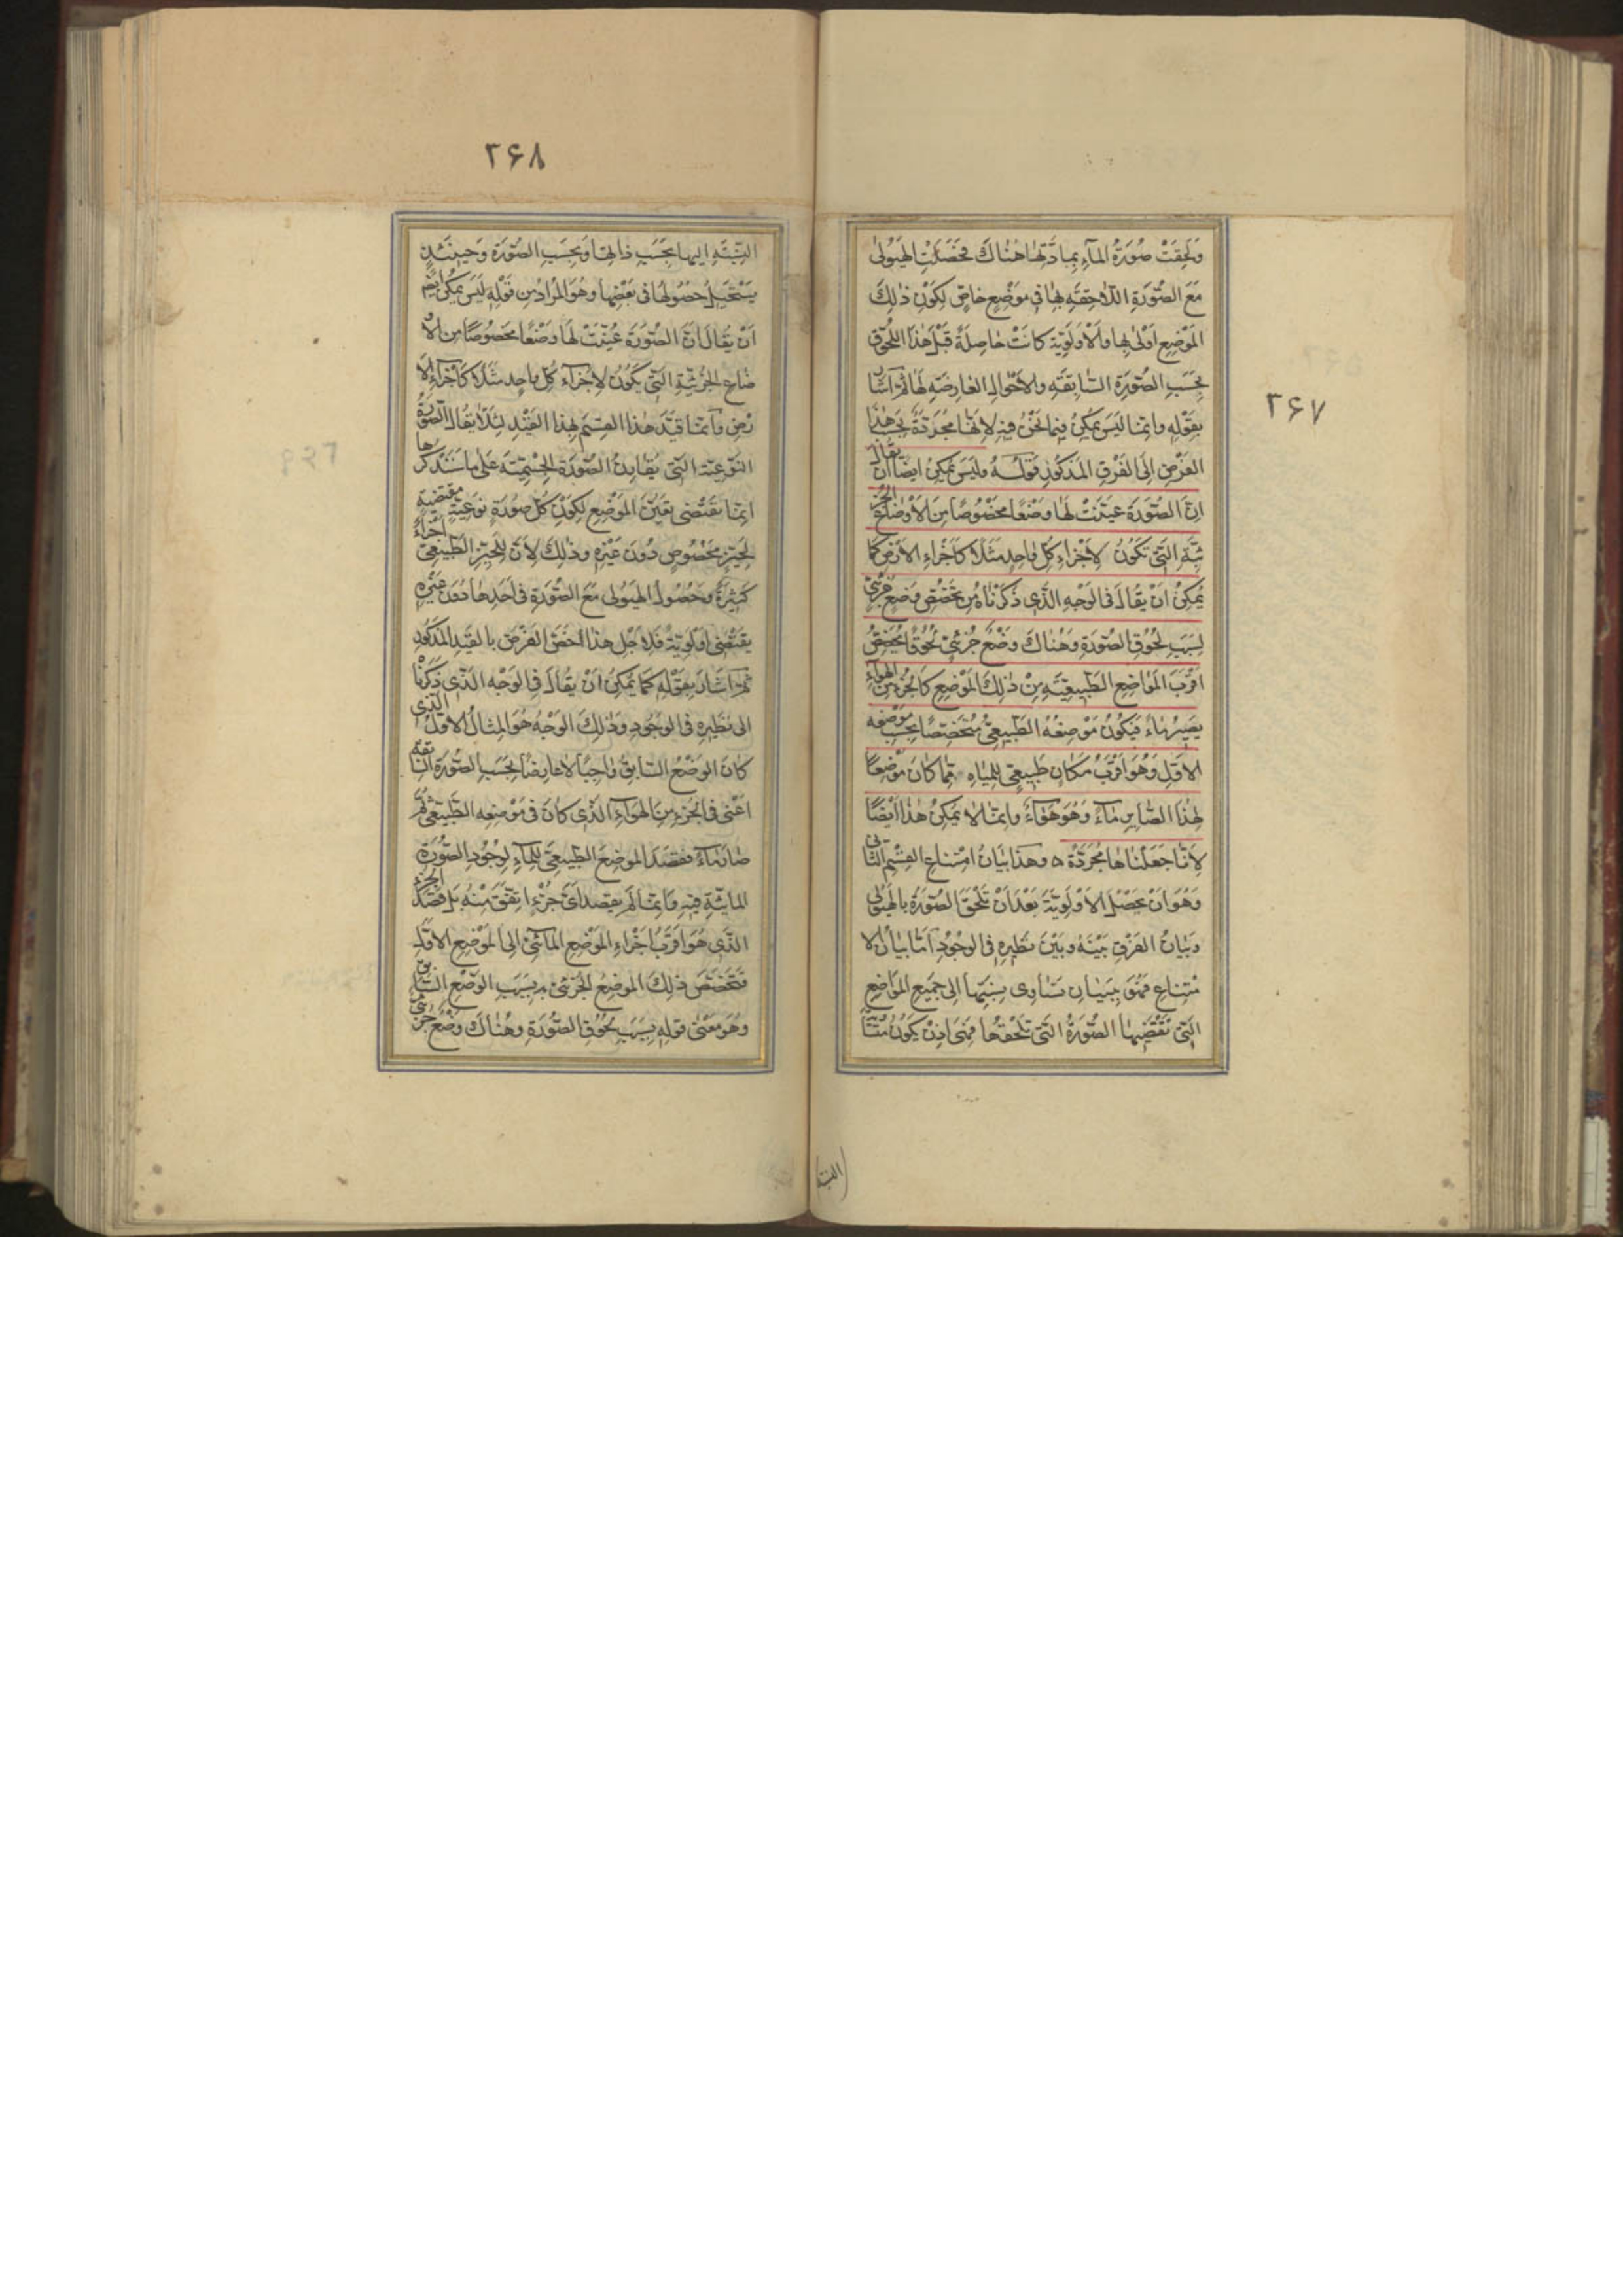 ۲۶۷
وَلَحِقَتْ صُورَةُ المآءِ بِمادَّتِها هُناكَ فَحَصَلَتِ الهَيُولىٰ
مَعَ الصُّورَةِ اللاحِقَةِ بِها فى مَوْضِعٍ خاصٍّ لِكَوْنِ ذلِكَ
المَوْضِعِ اَوْلىٰ بِها والاَوْلَوِيّة كانَتْ حاصِلَةً قَبْلَ هٰذا اللُّحُوقِ
بِحَسَبِ الصُّورَةِ السّابِقَةِ والاَحْوالِ العارِضَةِ لَها ثُمَّ اَشارَ
بِقَوْلِهِ وانّما لَيسَ يُمكِنُ فيما نَحْنُ فيهِ لاِنّها مُجَرّدَةٌ بِحَسَبِ هٰذا
الفَرْضِ اِلَى الفَرْقِ المَذكُورِ قَوْلُـهُ ولَيسَ يُمكِنُ ايضًا اَنْ يقالَ
اِنَّ الصُّورَةَ عَيّنَتْ لَها وَضْعًا مَخْصُوصًا مِنَ الاَوضاعِ الجز
ئيّةِ الّتى تَكُونُ لاَِجْزاءِ كُلّ واحِدٍ مَثَلاً كَاَجْزاءِ الاَرْضِ كَما
يُمكِنُ اَنْ يُقالَ فى الوَجْهِ الّذى ذَكَرْناهُ مِن تَخَصُّصِ وَضْعٍ جُزْئىّ
لِسَبَبِ لُحُوقِ الصُّورَةِ وَهُناكَ وَضْعٌ جُزْئىّ لُحُوقًا يُخَصِّصُ
اَقْرَبَ المَواضِعِ الطّبِيعيّةِ مِنْ ذٰلِكَ المَوْضِعِ كَالجُزءِ مِنَ الهَواءِ
يَصِيرُ ماءً فَيَكُونُ مَوْضِعُهُ الطّبِيعىّ مُتَخَصّصًا بِحَسَبِ مَوْضِعِه
الاَوَّلِ وَهُوَ اَقْرَبُ مَكانٍ طَبِيعىٍّ لِلمِياهِ مِمّا كانَ مَوْضِعًا
لِهٰذا الصّايرِ ماءً وَهُوَ هَواءٌ وانّما لا يُمكِنُ هٰذا اَيْضًا
لاَِنّا جَعَلْناها مُجَرّدَةً ٥ وهَذا بَيانُ امْتِناعِ القِسْمِ الثّانى
وَهُوَ اَنْ يَحصُلَ الاَوْلَوِيّةُ بَعْدَ اَنْ تَلْحَقَ الصُّورَةُ بِالهَيُولى
وبَيانُ الفَرْقِ بَيْنَهُ وبَيْنَ نَظِيرِهِ فى الوجُودِ اَمّا بَيانُ الا
مْتِناعِ فَهُوَ بِبَيانِ تَساوى نِسْبَتِها اِلى جَمِيعِ المَواضِعِ
الّتى تَقْتَضِيها الصُّورَةُ الّتى تَلْحَقُها فَهِىَ اِذَنْ يَكُونُ مُتَسا
(النسبة)
۲۶۸
النِّسْبَةِ اِليها بِحَسَبِ ذاتِها وَبِحَسَبِ الصُّورَةِ وَحِينَئذٍ
يَسْتَحيلُ حصُولُها فى بَعْضِها وهُوَ المُرادُ مِن قَوْلِهِ لَيسَ يُمكِنُ ايضا
اَنْ يُقالَ اَنّ الصُّورَةَ عَيّنَتْ لَها وَضْعًا مَخصُوصًا مِنَ الاَو
ضاعِ الجُزْئيّةِ الّتى يَكُونُ لاَِجْزاءِ كُلّ واحِدٍ مَثَلاً كَاَجزاءِ الاَ
رْضِ وانّما قَيّدَ هٰذا القِسْمَ بِهٰذا القَيْدِ لِئَلاّ يُقالَ الصُّورَةُ
النّوعِيّة الّتى يُقارِنُ الصُّورَةَ الجِسْمِيّةَ عَلى ما سَنَذكُرُها
انّما تَقتَضى تَعَيُّنَ المَوْضِعِ لِكَوْنِ كُلّ صُورَةٍ نَوعِيّةٍ مقتضيةٍ
لِحَيّزٍ مَخْصُوصٍ دُونَ غَيْرِهِ وَذٰلِكَ لاَِنّ لِلحَيّزِ الطّبِيعىّ اَجْزاءً
كَثيرَةً وحُصُولُ الهَيُولى مَعَ الصُّورَةِ فى اَحَدِها دُونَ غَيْرِهِ
يَقتَضِى اَوْلَوِيّةً فَلاَِجْلِ هٰذا خَصّ الفَرْضَ بِالقَيدِ المَذكُورِ
ثُمّ اَشارَ بِقَوْلِهِ كَما يُمكِنُ اَنْ يُقالَ فى الوَجْهِ الّذى ذَكَرْنا
الى نَظِيرِهِ فى الوجُودِ وذٰلِكَ الوَجْهُ هُوَ المِثالُ الاَوّلُ الّذى
كانَ الوَضْعُ السّابِقُ واجِبًا لا عارِضًا بِحَسَبِ الصُّورَةِ السّابقة
اَعْنى فى الجُزءِ مِنَ الهَواءِ الّذى كانَ فى مَوْضِعِه الطّبِيعىّ ثُمّ
صارَ ماءً فَقَصَدَ المَوضِعَ الطّبِيعىّ لِلماءِ لِوُجُودِ الصُّورَةِ
المائيّةِ فيهِ وانّما لَم يَقصِد اَىّ جُزْءٍ اتّفَقَ مِنْهُ بَلْ قَصَدَ الجزء
الّذى هُوَ اَقرَبُ اَجْزاءِ المَوْضِعِ المائىّ اِلى المَوْضِعِ الاَوّلِ
فَتَخَصّصَ ذٰلِكَ المَوضِعُ الجُزئىّ بِهِ بِسَبَبِ الوَضْعِ السّابق
وَهُوَ مَعْنى قَولِهِ بِسَبَبِ لُحُوقِ الصُّورَةِ وهُناكَ وَضْعٌ جُزْئىٌّ